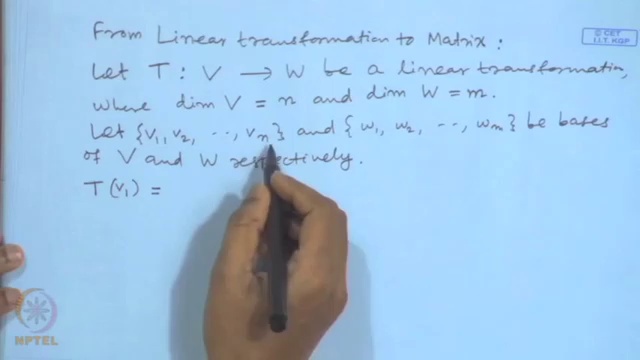 © CET
I.I.T. KGP
From Linear transformation to Matrix :
Let T : V → W be a linear transformation,
where dim V = n and dim W = m.
Let {v₁, v₂, ..., vₙ} and {w₁, w₂, ..., wₘ} be bases
of V and W respectively.
T(v₁) =
NPTEL